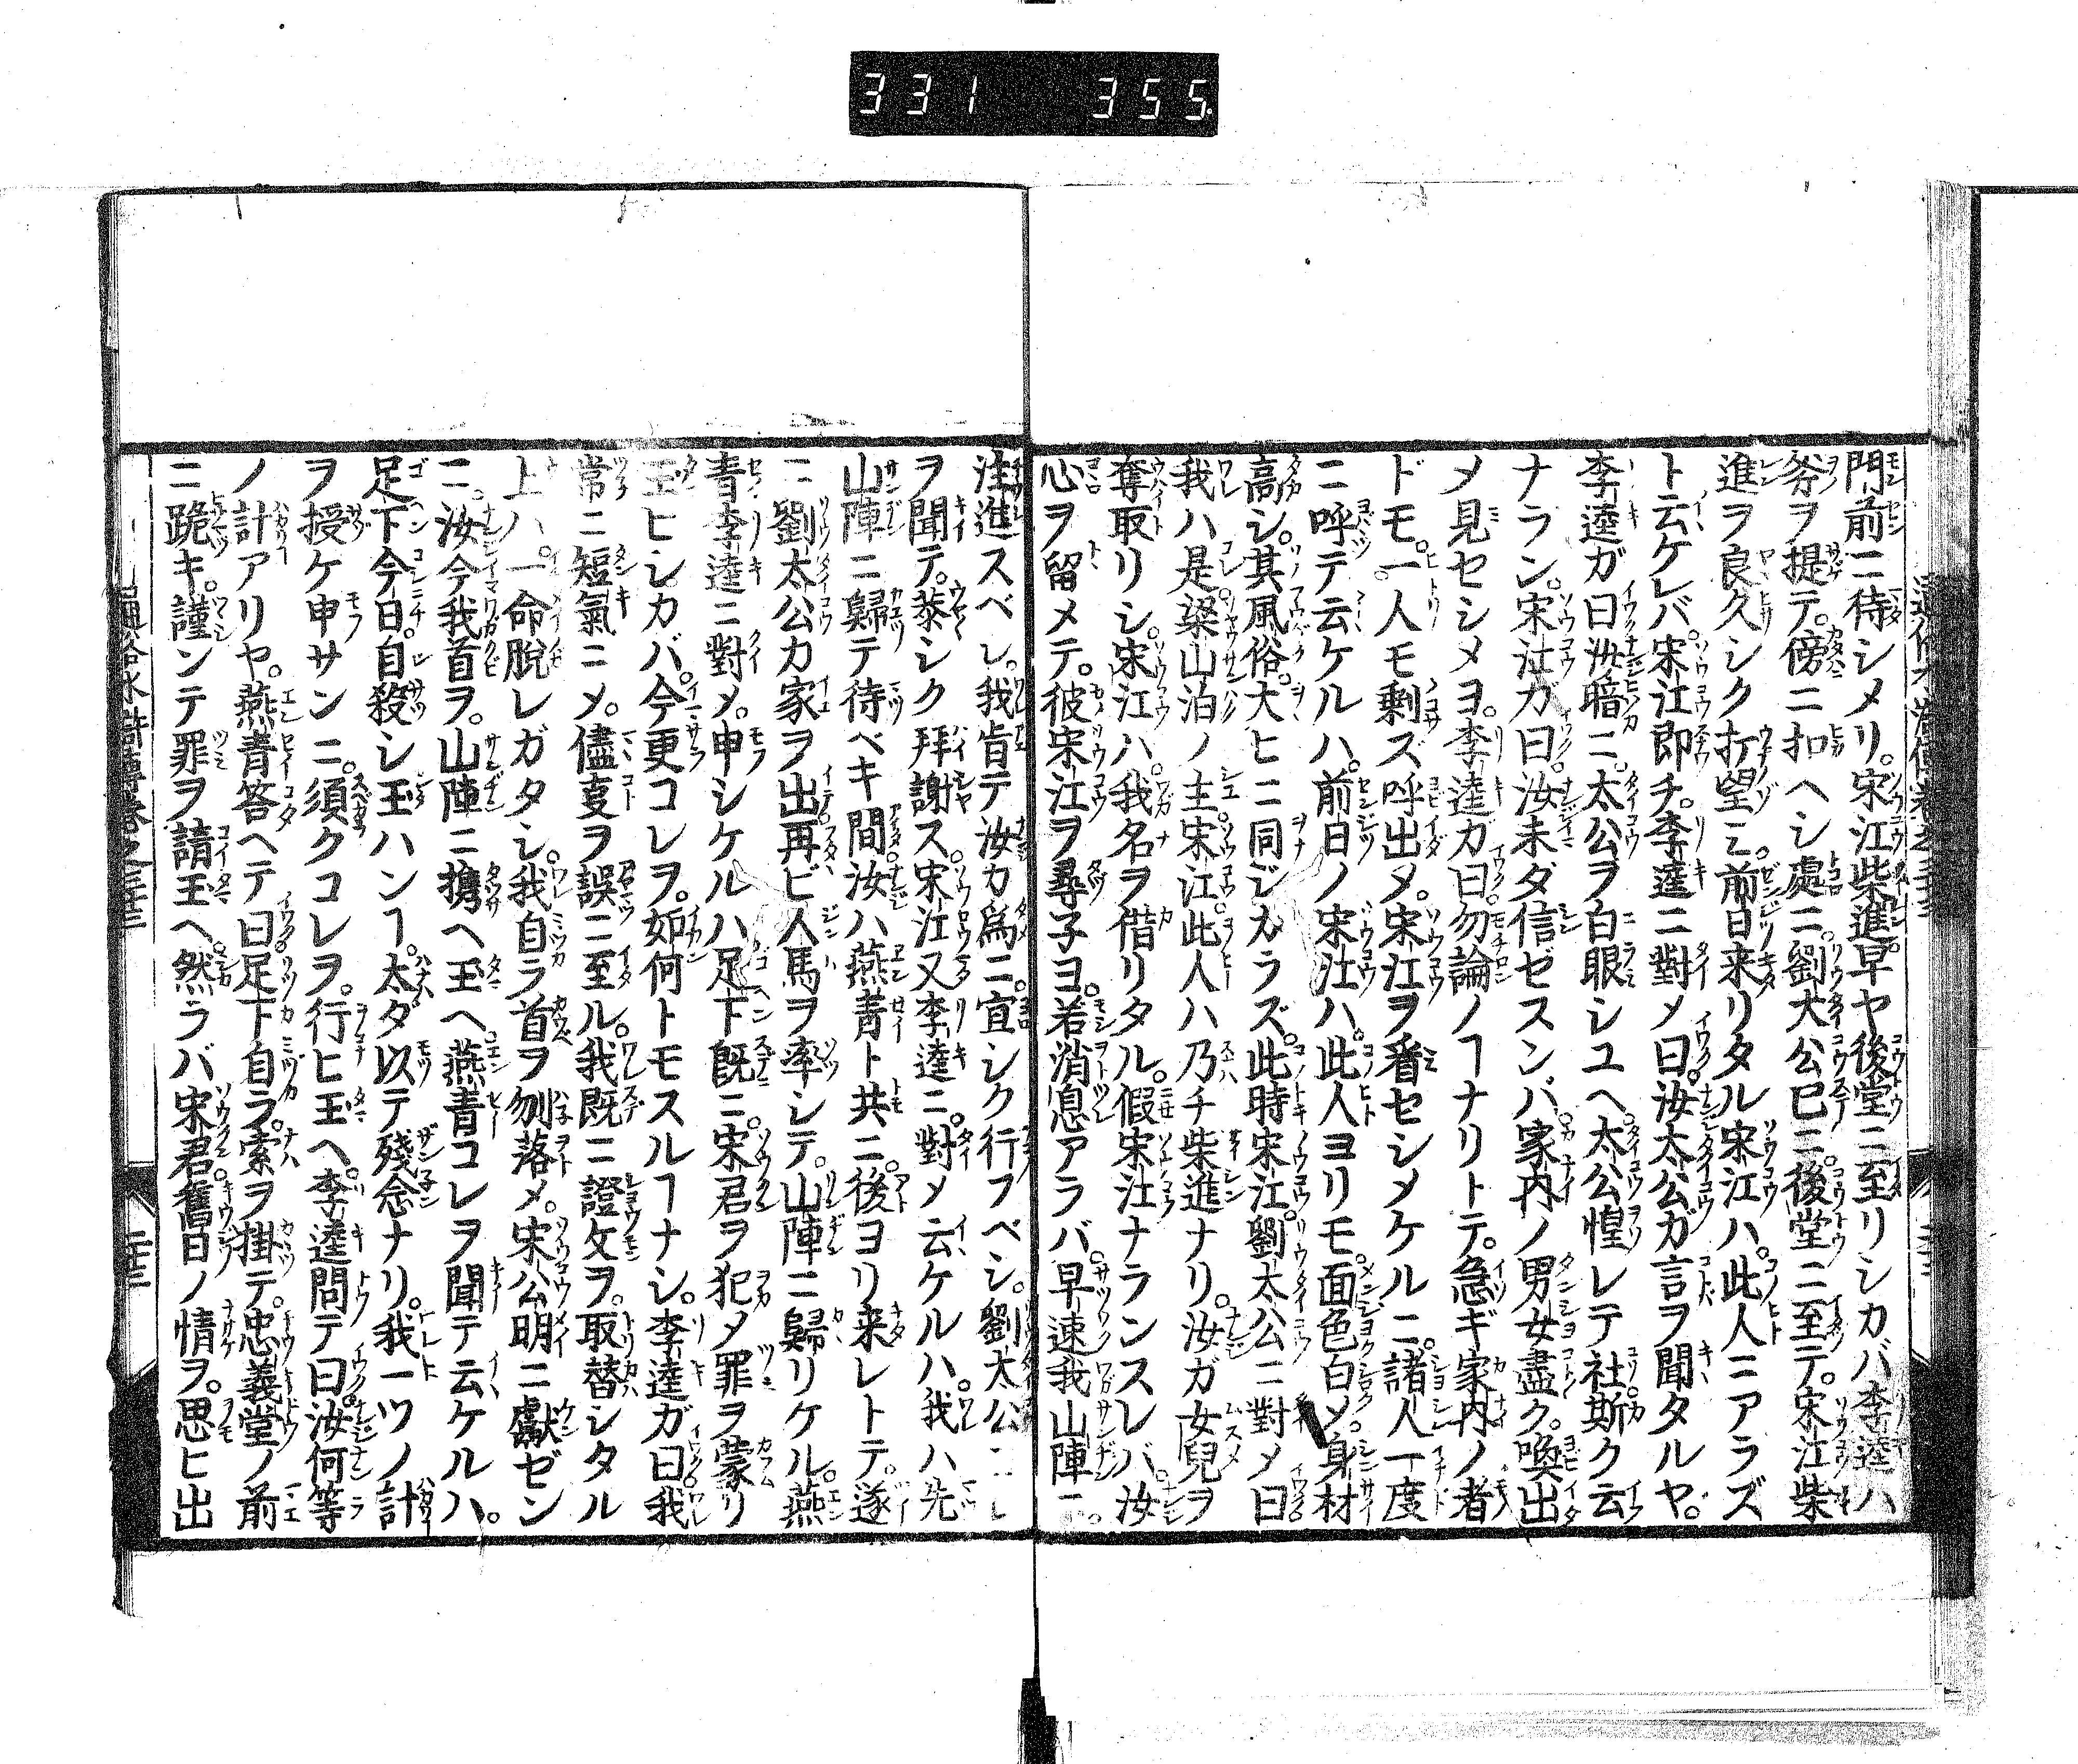 331 355
門前ニ待シメリ。宋江柴進早ヤ後堂ニ至リシカバ李逵ハ
斧ヲ提テ。傍ニ扣ヘシ處ニ。劉太公已ニ後堂ニ至テ。宋江柴
進ヲ良久シク打望ミ。前日来リタル宋江ハ。此人ニアラズ
ト云ケレバ。宋江即チ。李逵ニ對メ曰。汝太公ガ言ヲ聞タルヤ。
李逵ガ曰汝暗ニ。太公ヲ白眼シユヘ。太公惶レテ社斯ク云
ナラン。宋江カ曰。汝未ダ信ゼスンバ。家内ノ男女盡ク。喚出
メ見セシメヨ。李逵カ曰。勿論ノヿナリトテ。急ギ家内ノ者
ドモ。一人モ剰ズ呼出メ。宋江ヲ看セシメケルニ。諸人一度
ニ呼テ云ケルハ。前日ノ宋江ハ。此人ヨリモ。面色白メ。身材
高シ。其風俗。大ヒニ同ジカラズ。此時宋江。劉太公ニ對メ曰
我ハ是。梁山泊ノ主宋江。此人ハ乃チ柴進ナリ。汝ガ女兒ヲ
奪取リシ。宋江ハ。我名ヲ借リタル。假宋江ナランスレバ。汝
心ヲ留メテ。彼宋江ヲ尋子ヨ。若消息アラバ。早速我山陣ニ。
注進スベシ。我皆テ汝カ爲ニ。宜シク行フベシ。劉太公コレ
ヲ聞テ。恭シク拜謝ス。宋江又李逵ニ。對メ云ケルハ。我ハ先
山陣ニ歸テ待ベキ間。汝ハ燕青ト共ニ。後ヨリ来レトテ。遂
ニ劉太公カ家ヲ出。再ビ人馬ヲ率シテ。山陣ニ歸リケル。燕
青李逵ニ對メ。申シケルハ足下既ニ。宋君ヲ犯メ罪ヲ蒙リ
玉ヒシカバ。今更コレヲ。如何トモスルヿナシ。李逵ガ曰。我
常ニ短氣ニメ。儘支ヲ誤ニ至ル。我既ニ證文ヲ。取替シタル
上ハ。一命脱レガタシ。我自ラ首ヲ刎落メ。宋公明ニ獻ゼン
ニ。汝今我首ヲ。山陣ニ携ヘ玉ヘ。燕青コレヲ聞テ云ケルハ。
足下今日。自殺シ玉ハンヿ。太ダ以テ殘念ナリ。我一ツノ計
ヲ授ケ申サンニ。須クコレヲ。行ヒ玉ヘ。李逵問テ曰。汝何等
ノ計アリヤ。燕青答ヘテ曰。足下自ラ。索ヲ掛テ。忠義堂ノ前
ニ跪キ。謹ンテ罪ヲ請玉ヘ。然ラバ宋君。舊日ノ情ヲ。思ヒ出
通俗水滸傳巻之三十三